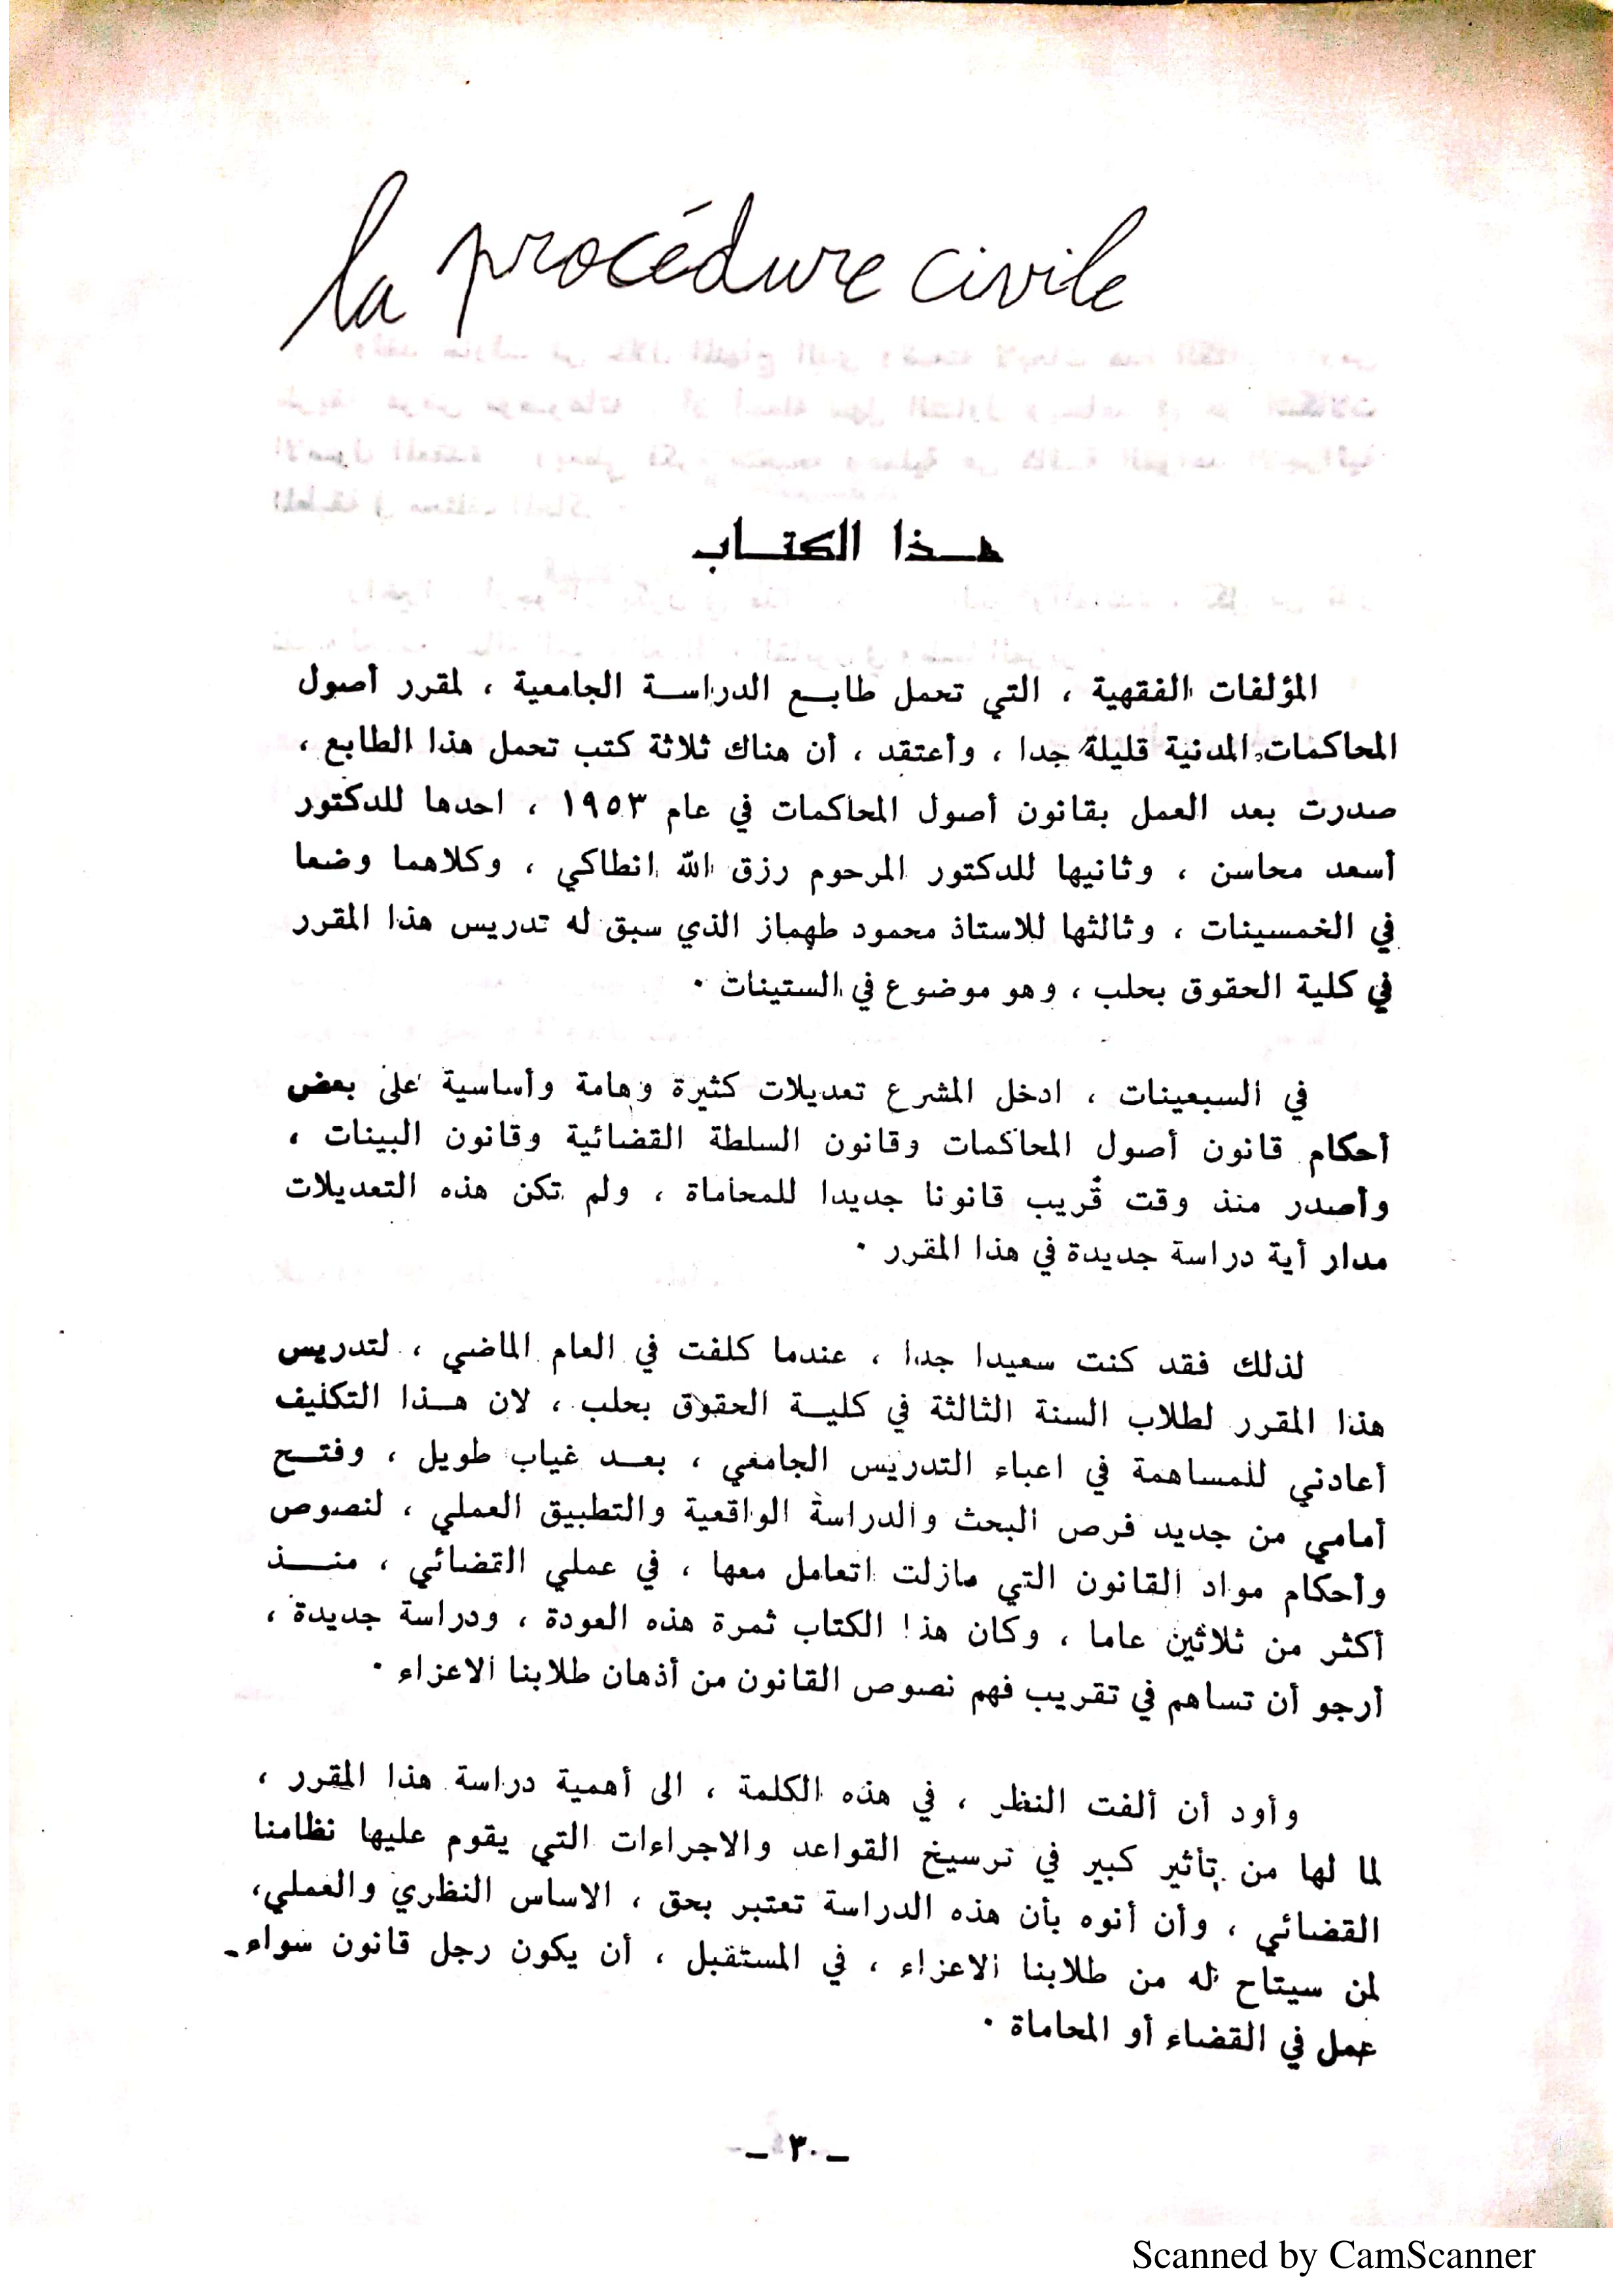 la procédure civile
هذا الكتاب
المؤلفات الفقهية ، التي تحمل طابع الدراسة الجامعية ، لمقرر أصول
المحاكمات المدنية قليلة جدا ، وأعتقد ، أن هناك ثلاثة كتب تحمل هذا الطابع ،
صدرت بعد العمل بقانون أصول المحاكمات في عام ١٩٥٣ ، احدها للدكتور
أسعد محاسن ، وثانيها للدكتور المرحوم رزق الله انطاكي ، وكلاهما وضعا
في الخمسينات ، وثالثها للاستاذ محمود طهماز الذي سبق له تدريس هذا المقرر
في كلية الحقوق بحلب ، وهو موضوع في الستينات ٠
في السبعينات ، ادخل المشرع تعديلات كثيرة وهامة وأساسية على بعض
أحكام قانون أصول المحاكمات وقانون السلطة القضائية وقانون البينات ،
وأصدر منذ وقت قريب قانونا جديدا للمحاماة ، ولم تكن هذه التعديلات
مدار أية دراسة جديدة في هذا المقرر ٠
لذلك فقد كنت سعيدا جدا ، عندما كلفت في العام الماضي ، لتدريس
هذا المقرر لطلاب السنة الثالثة في كلية الحقوق بحلب ، لان هذا التكليف
أعادني للمساهمة في اعباء التدريس الجامعي ، بعد غياب طويل ، وفتح
أمامي من جديد فرص البحث والدراسة الواقعية والتطبيق العملي ، لنصوص
وأحكام مواد القانون التي مازلت اتعامل معها ، في عملي القضائي ، منذ
أكثر من ثلاثين عاما ، وكان هذا الكتاب ثمرة هذه العودة ، ودراسة جديدة ،
أرجو أن تساهم في تقريب فهم نصوص القانون من أذهان طلابنا الاعزاء ٠
وأود أن ألفت النظر ، في هذه الكلمة ، الى أهمية دراسة هذا المقرر ،
لما لها من تأثير كبير في ترسيخ القواعد والاجراءات التي يقوم عليها نظامنا
القضائي ، وأن أنوه بأن هذه الدراسة تعتبر بحق ، الاساس النظري والعملي،
لمن سيتاح له من طلابنا الاعزاء ، في المستقبل ، أن يكون رجل قانون سواء
عمل في القضاء أو المحاماة ٠
ـ ٣٠ ـ
Scanned by CamScanner